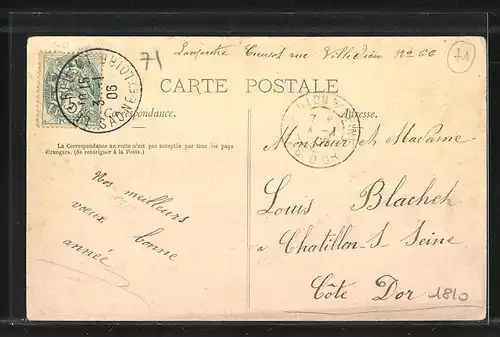 71
Creusot rue Villedieu No 66
71
CARTE POSTALE
Correspondance.
Adresse.
La Correspondance au recto n'est pas acceptée par tous les pays
étrangers. (Se renseigner à la Poste).
SAONE-ET-LOIRE
3 -1
06
COTE D'OR
Monsieur et Madame
Louis Blachek
à Chatillon-S-Seine
Côte Dor
1810
Nos meilleurs
vœux bonne
année